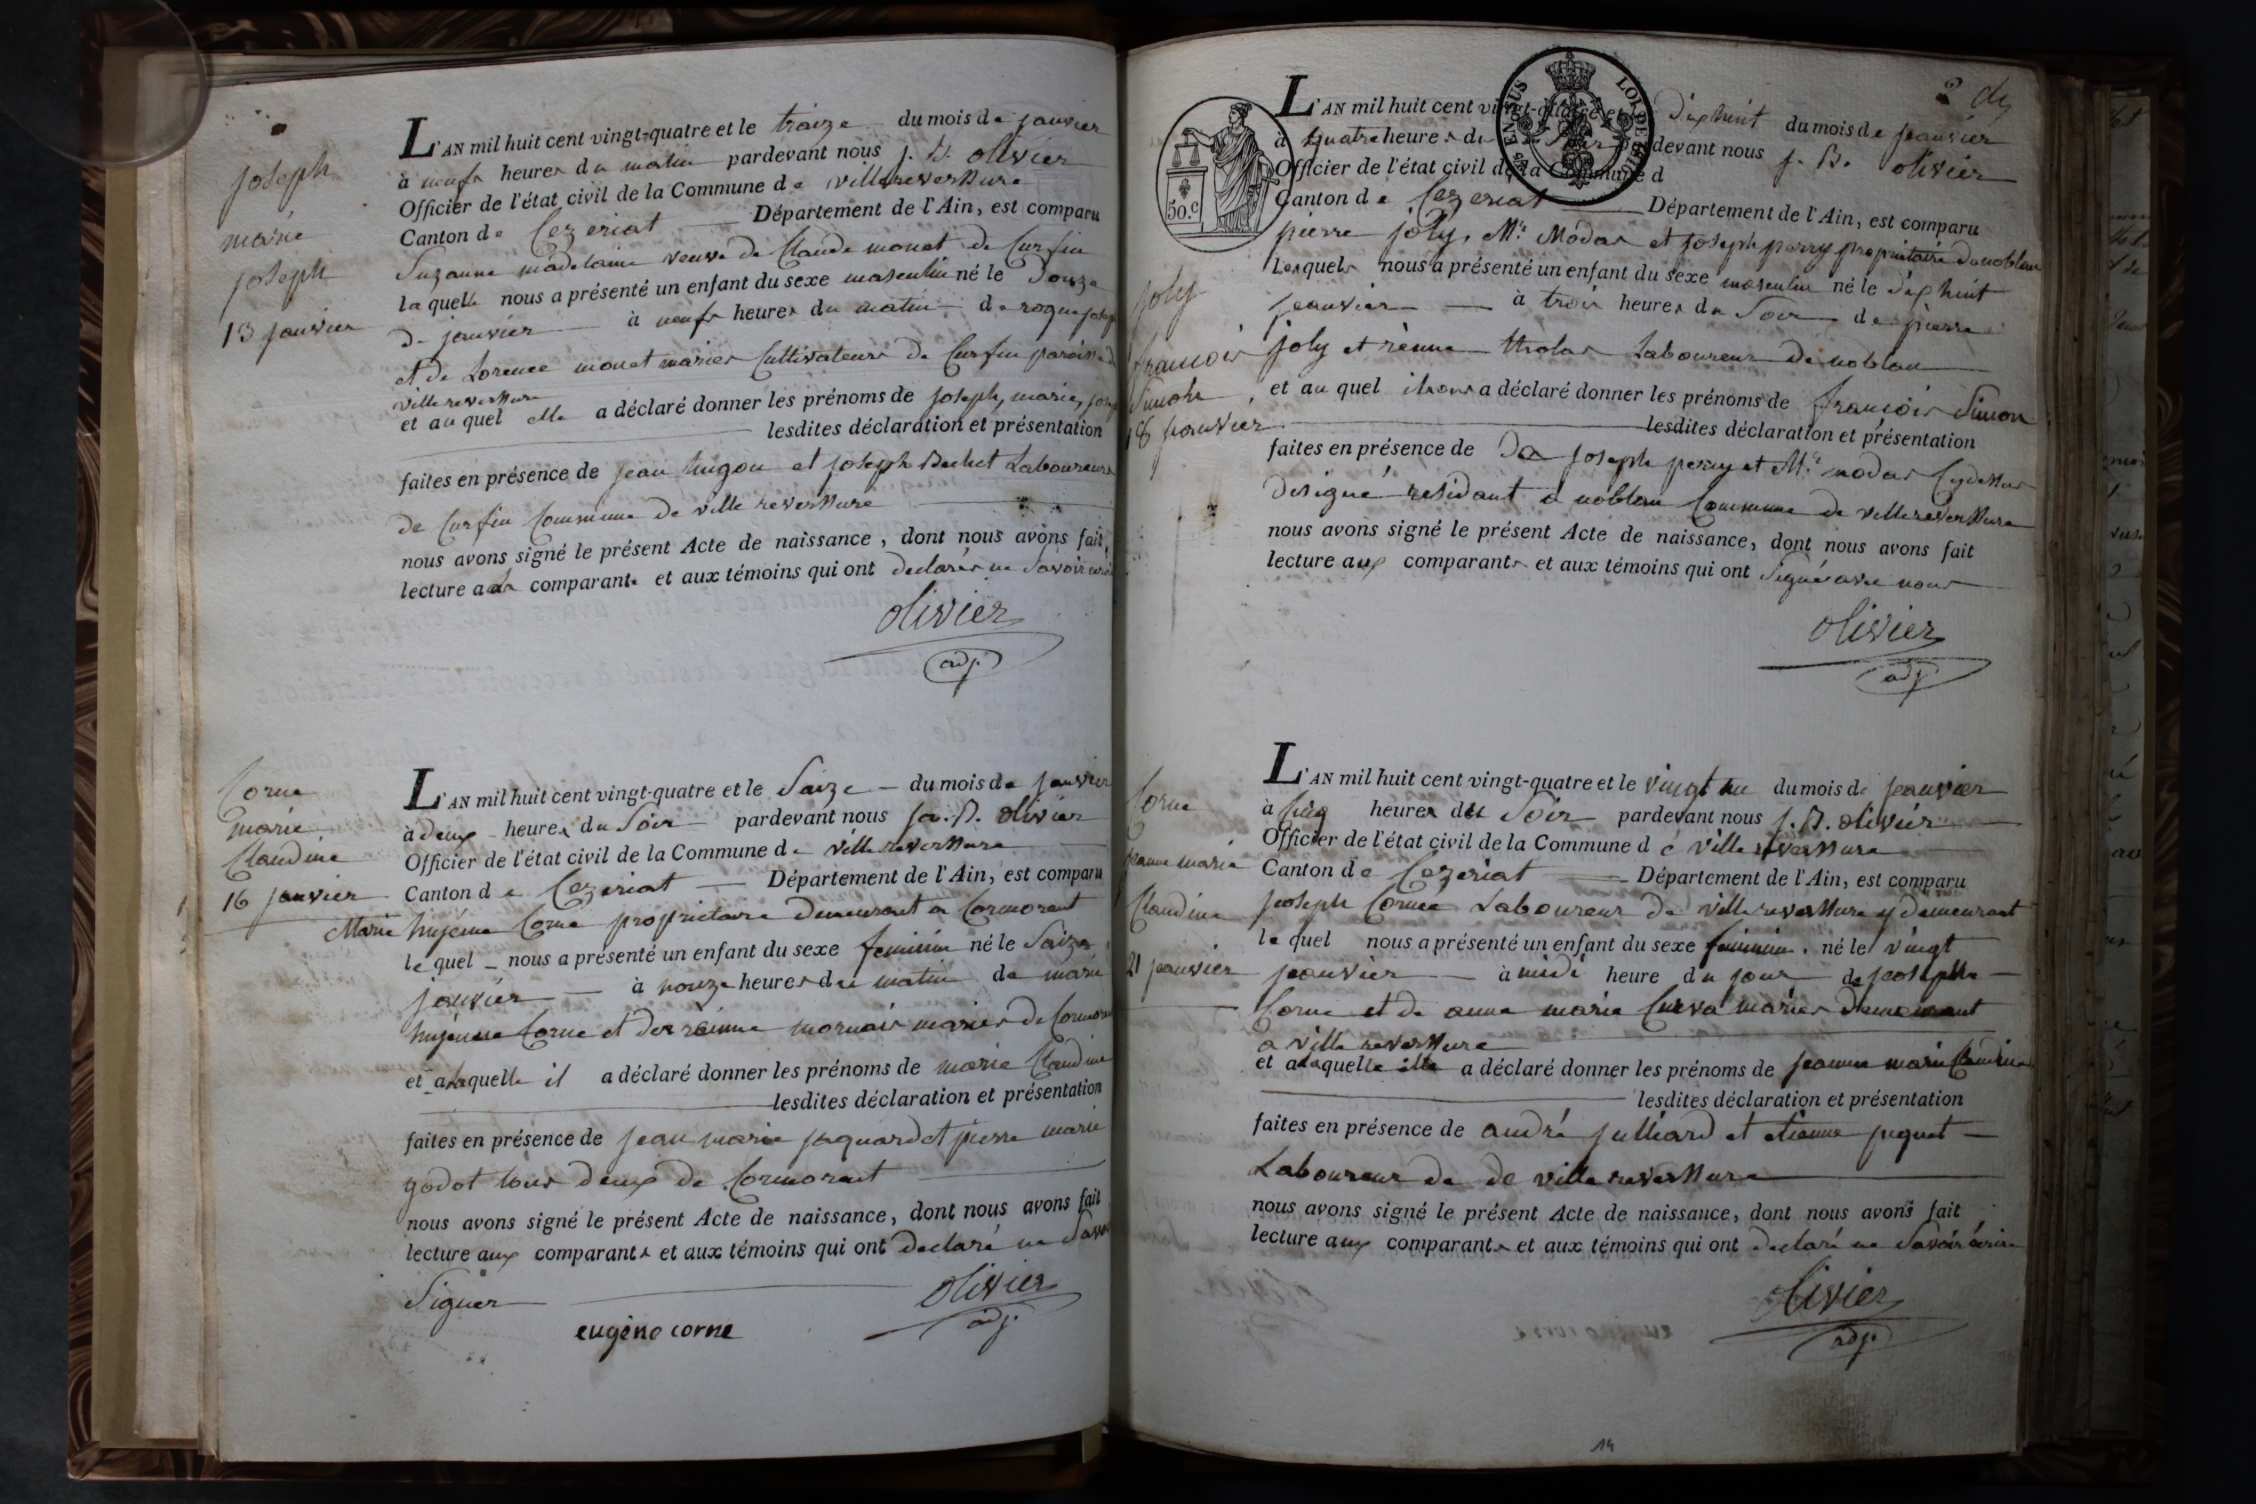 joseph
marie
joseph
13 janvier
L'AN mil huit cent vingt-quatre et le traize du mois de janvier
à neufs heures du matin pardevant nous j. B. olivier
Officier de l'état civil de la Commune de villereverssure
Canton de Cezeriat Département de l'Ain, est comparu
Suzanne madelaine veuve de Claude monet de Curfin
la quelle nous a présenté un enfant du sexe masculin né le Douze
de janvier à neufs heures du matin de roque joseph
et de Lorence monet mariés Cultivateurs de Curfin paroisse de
villereverssure
et au quel elle a déclaré donner les prénoms de joseph, marie, joseph
lesdites déclaration et présentation
faites en présence de jean hugon et joseph Bechet Laboureurs
de Curfin Commune de ville reverssure
nous avons signé le présent Acte de naissance, dont nous avons fait
lecture a la comparante et aux témoins qui ont declarés ne Savoir
olivier
adj.
Corne
marie
Claudine
16 janvier
L'AN mil huit cent vingt-quatre et le Saize du mois de janvier
à deux heures du Soir pardevant nous olivier
Officier de l'état civil de la Commune de ville reverssure
Canton de Cezeriat Département de l'Ain, est comparu
Marie hujéne Corne proprietaire demeurant a Cormorent
le quel nous a présenté un enfant du sexe feminin né le Saize
janvier à houze heures du matin de marie
hujenne Corne et der reinne mornais mariés de Cormorent
et a laquelle il a déclaré donner les prénoms de marie Claudine
lesdites déclaration et présentation
faites en présence de jean marie jaquard et pierre marie
godot tous deux de Cormorent
nous avons signé le présent Acte de naissance, dont nous avons fait
lecture aux comparants et aux témoins qui ont declaré ne Savoir
Signer
olivier
adj.
eugène corne
2
50.c
LOI DE 1816
joly
francois
Simon
18 janvier
L'AN mil huit cent vingt-quatre et le dixhuit du mois de jeanvier
à quatre heures du Soir pardevant nous j. B. olivier
Officier de l'état civil de la Commune d
Canton de Cezeriat Département de l'Ain, est comparu
pierre joly, Mie Modas et joseph perry proprietaire de noblan
Lesquels nous a présenté un enfant du sexe masculin né le dixhuit
jeanvier à trois heures du Soir de pierre
joly et rènne tholas Laboureur de noblan
et au quel ilsons a déclaré donner les prénoms de francois Simon
lesdites déclaration et présentation
faites en présence de Da joseph perry et Mie modas Cydessus
designé residant a noblan Commune de villereverssure
nous avons signé le présent Acte de naissance, dont nous avons fait
lecture aux comparants et aux témoins qui ont Signés avec nous
olivier
adj
Corne
jeanne marie
Claudine
21 jeanvier
L'AN mil huit cent vingt-quatre et le vingt un du mois de jeanvier
à cinq heures du Soir pardevant nous j. B. olivier
Officier de l'état civil de la Commune de ville reverssure
Canton de Cezeriat Département de l'Ain, est comparu
joseph Corne Laboureur de ville reverssure y demeurant
le quel nous a présenté un enfant du sexe feminin né le vingt
jeanvier à midi heure du jour de joseph
Corne et de anne marie Curva mariés demeurant
a ville reverssure
et a laquelle ille a déclaré donner les prénoms de jeanne marie Claudine
lesdites déclaration et présentation
faites en présence de andré julliard et etienne piquet
Laboureur de de ville reverssure
nous avons signé le présent Acte de naissance, dont nous avons fait
lecture aux comparants et aux témoins qui ont declaré ne Savoir écrire
olivier
adj.
14